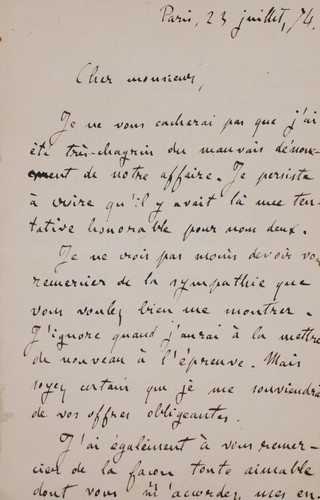 Paris, 23 juillet, 74.
Cher monsieur,
Je ne vous cacherai pas que j'ai
été très-chagrin du mauvais dénoue-
ment de notre affaire. Je persiste
à croire qu'il y avait là une ten-
tative honorable pour nous deux.
Je ne crois pas moins devoir vous
remercier de la sympathie que
vous voulez bien me montrer.
J'ignore quand j'aurai à la mettre
de nouveau à l'épreuve. Mais
soyez certain que je me souviendrai
de vos offres obligeantes.
J'ai également à vous remer-
cier de la façon toute aimable
dont vous m'accordez, mes en-